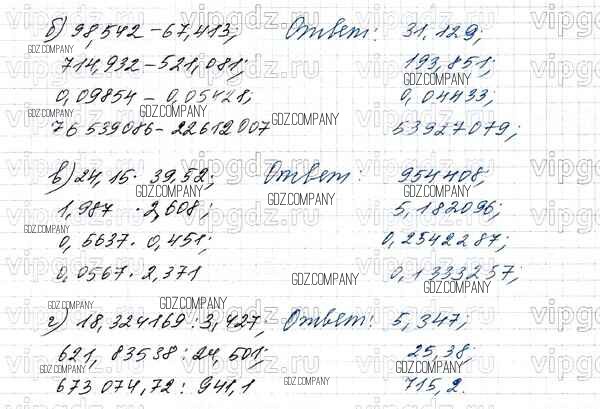 б) 98,542 - 67,413; Ответ: 31,129;
714,932 - 521,081; 193,851;
0,09854 - 0,05421; 0,04433;
76 539086 - 22612007 53927079;
в) 24,15 · 39,52; Ответ: 954408;
1,987 · 2,608; 5,182096;
0,5637 · 0,451; 0,2542287;
0,0567 · 2,371 0,1333257;
г) 18,324169 : 3,427; Ответ: 5,347;
621,83538 : 24,501; 25,38;
673 074,72 : 941,1 715,2.
GDZ.COMPANY
vipgdz.ru